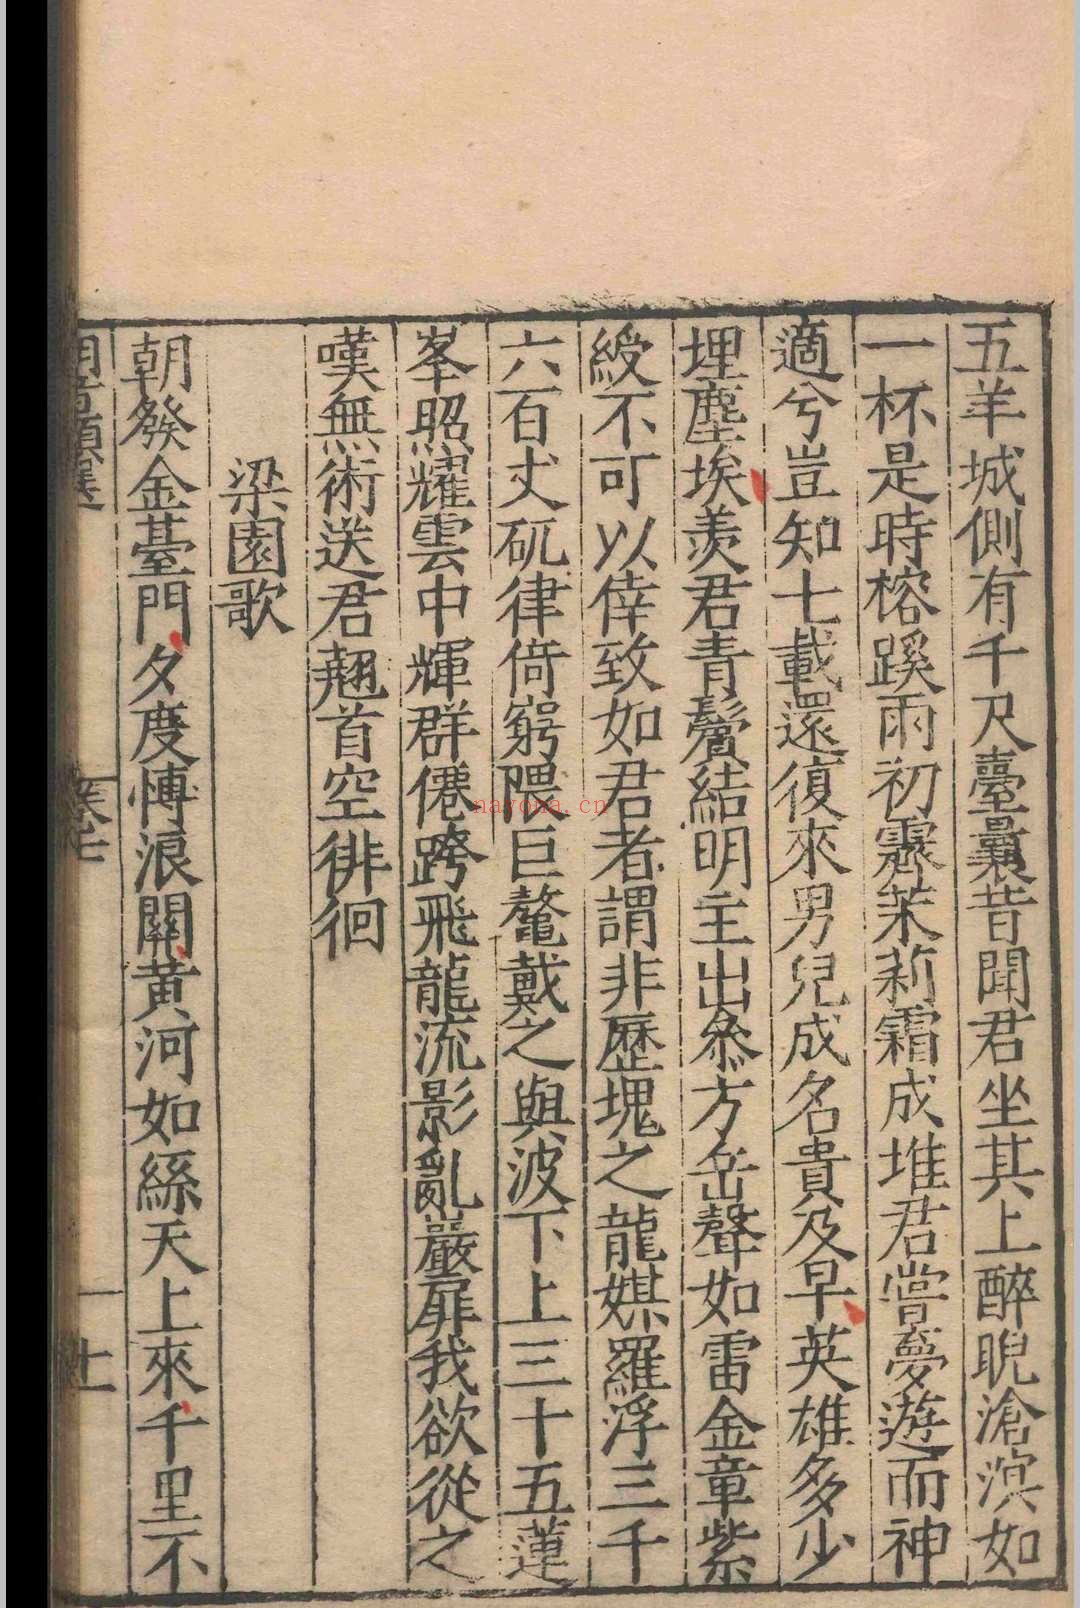 五羊城側有千尺臺曩昔聞君坐其上醉睨滄溟如
一杯是時榕蹊雨初霽茉莉霜成堆君嘗夢遊而神
適兮豈知七載還復來男兒成名貴及早英雄多少
埋塵埃羨君青鬢結明主出叅方岳聲如雷金章紫
綬不可以倖致如君者謂非歷塊之龍媒羅浮三千
六百丈矹律倚窮隈巨鼇戴之與波下上三十五蓮
峯照耀雲中輝群僊跨飛龍流影亂巖扉我欲從之
嘆無術送君翹首空徘徊
梁園歌
朝發金臺門夕度愽浪關黃河如絲天上來千里不
明音類選
卷七
十一
nayona.cn